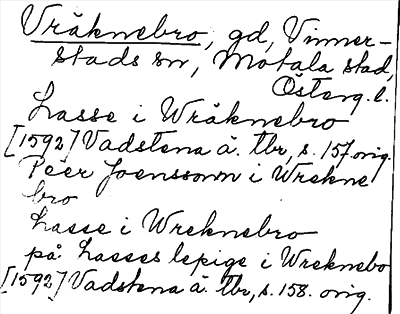 Vråknebro, gd, Vinner-
stads sn, Motala stad,
Österg. l.
Lasse i Wråknebro
[1592] Vadstena ä. tbr, s. 157 orig.
Peer Joenssonn i Wrekne
bro
Lasse i Wreknebro
på Lasses lepige i Wreknebo
[1592] Vadstena ä. tbr, s. 158. orig.